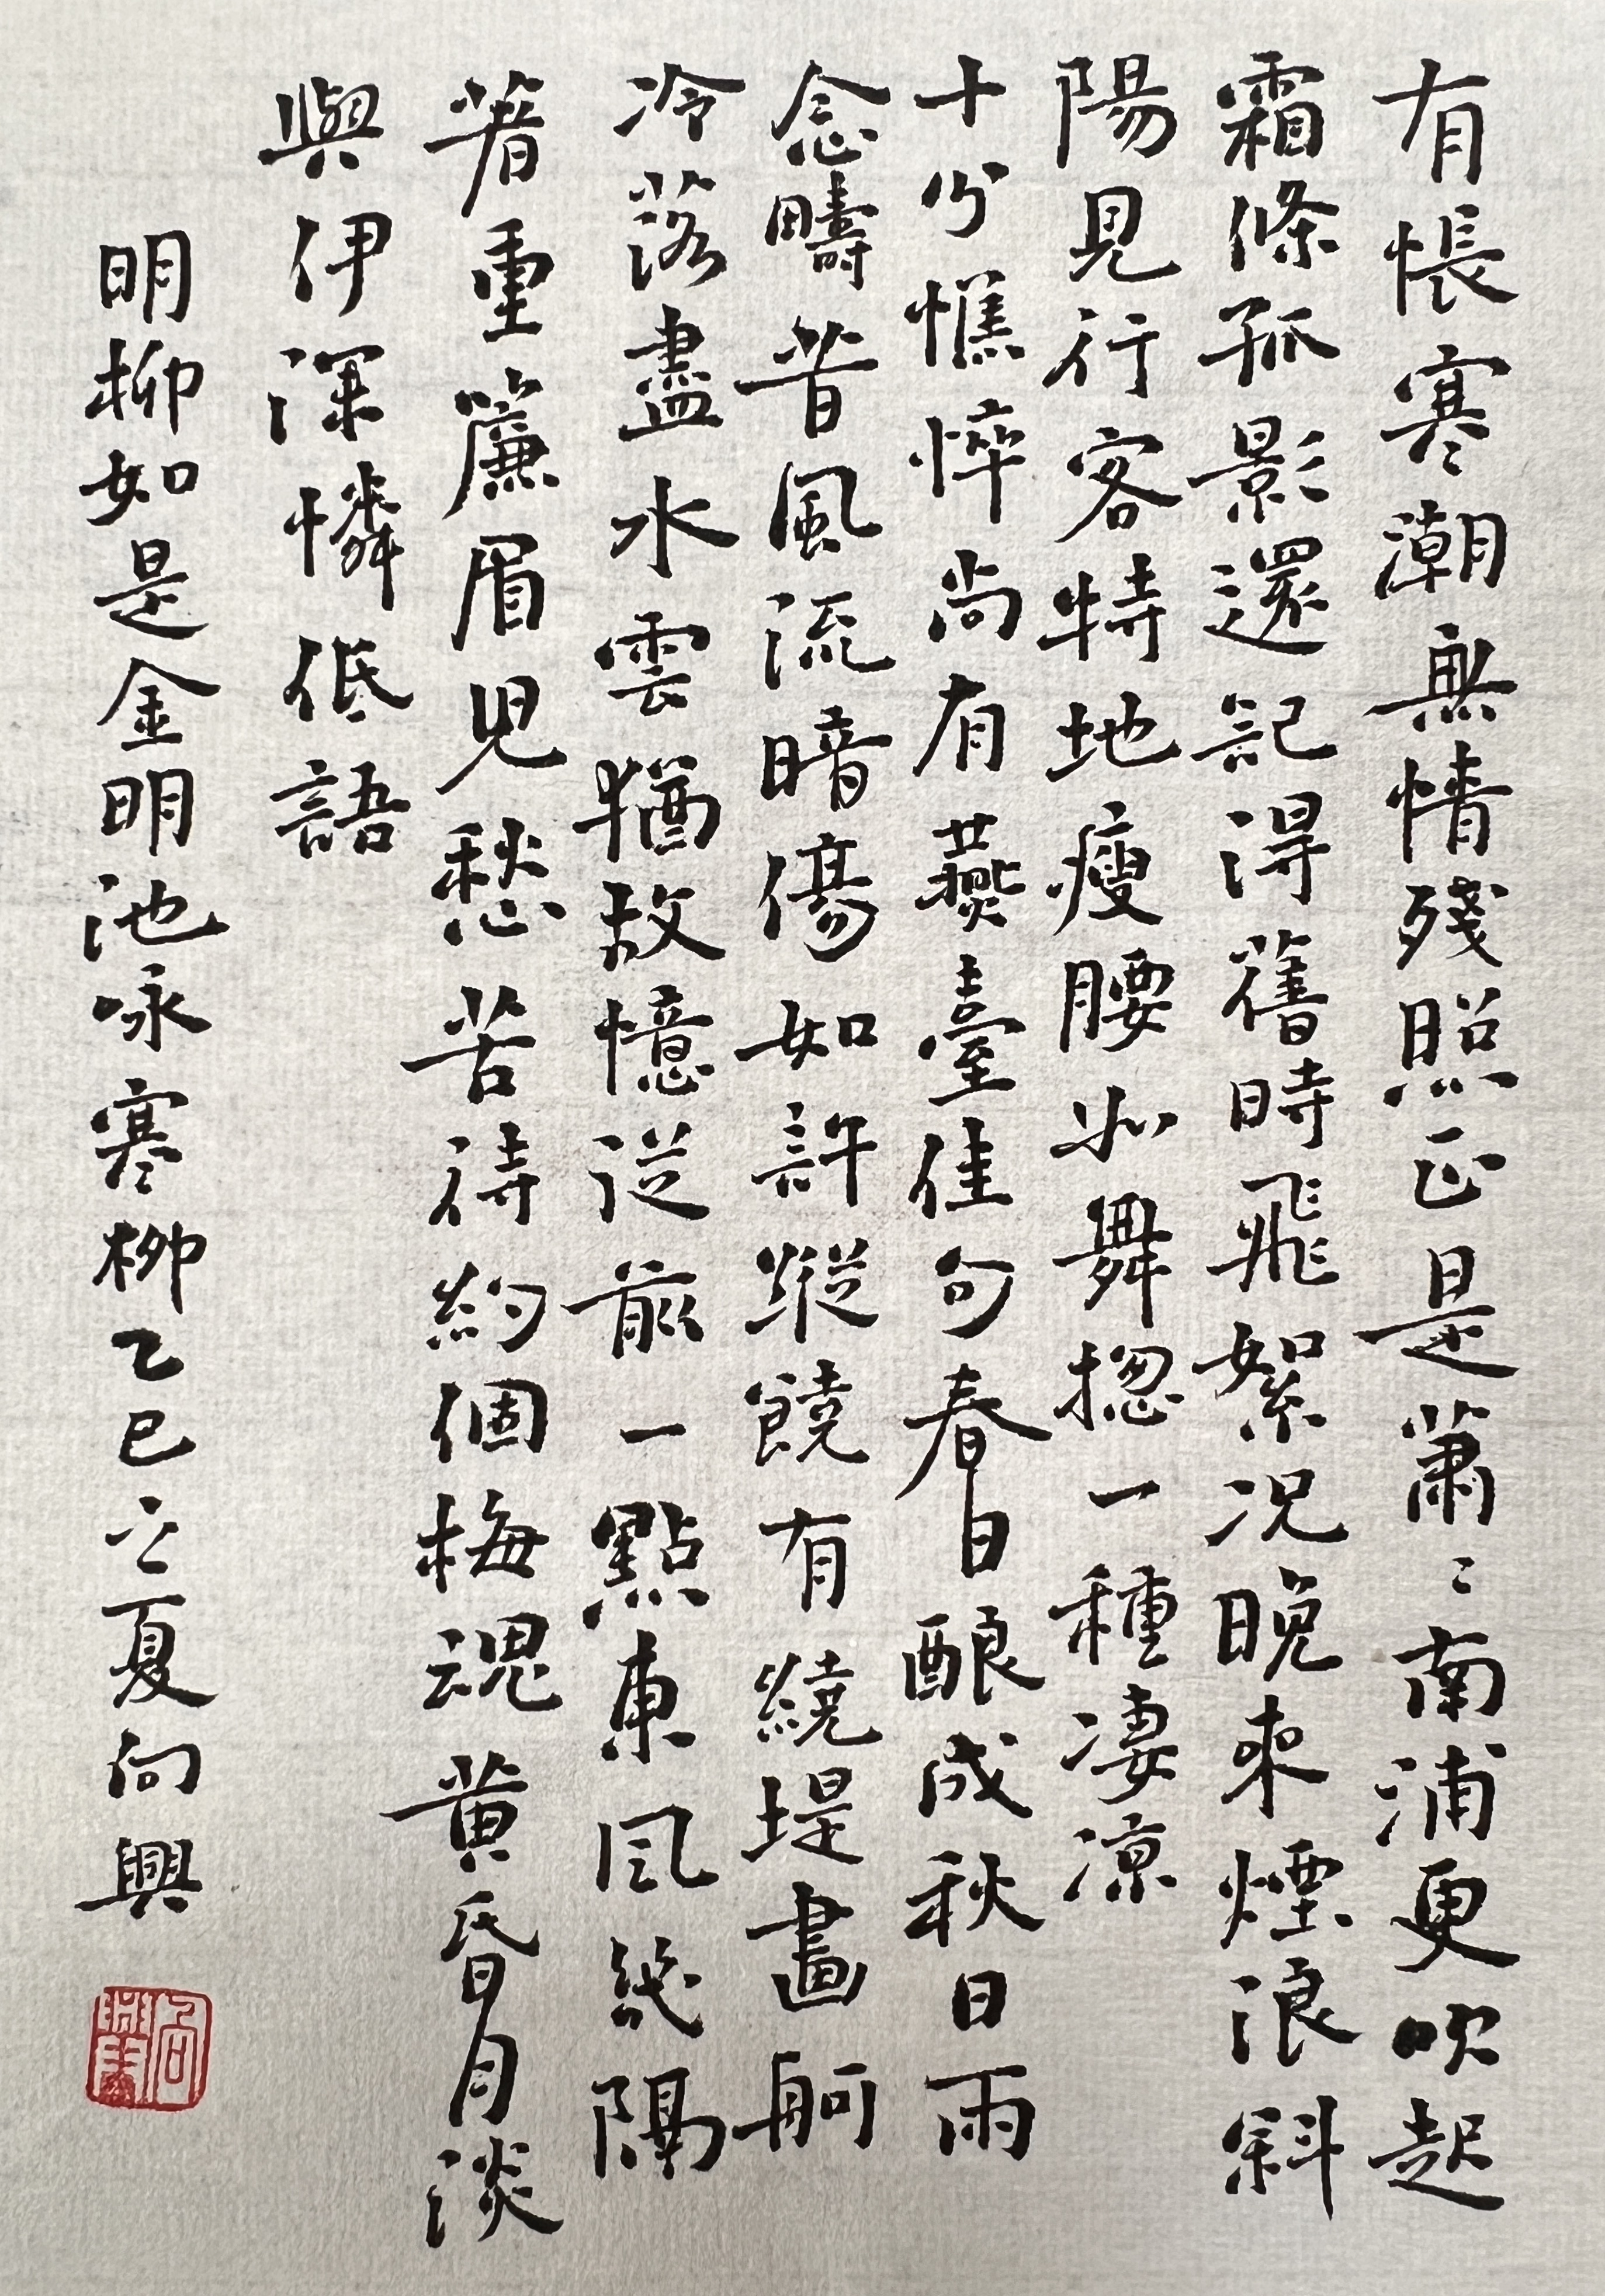 有悵寒潮無情殘照正是蕭〻南浦更吹起
霜條孤影還記得舊時飛絮況晚來煙浪斜
陽見行客特地瘦腰如舞揔一種凄涼
十分憔悴尚有燕臺佳句春日釀成秋日雨
念疇昔風流暗傷如許蹤饒有繞堤畫舸
冷落盡水雲猶故憶從前一點東風幾隔
著重簾眉兒愁苦待約個梅魂黃昏月淡
與伊深憐低語
明柳如是金明池咏寒柳乙巳立夏向興